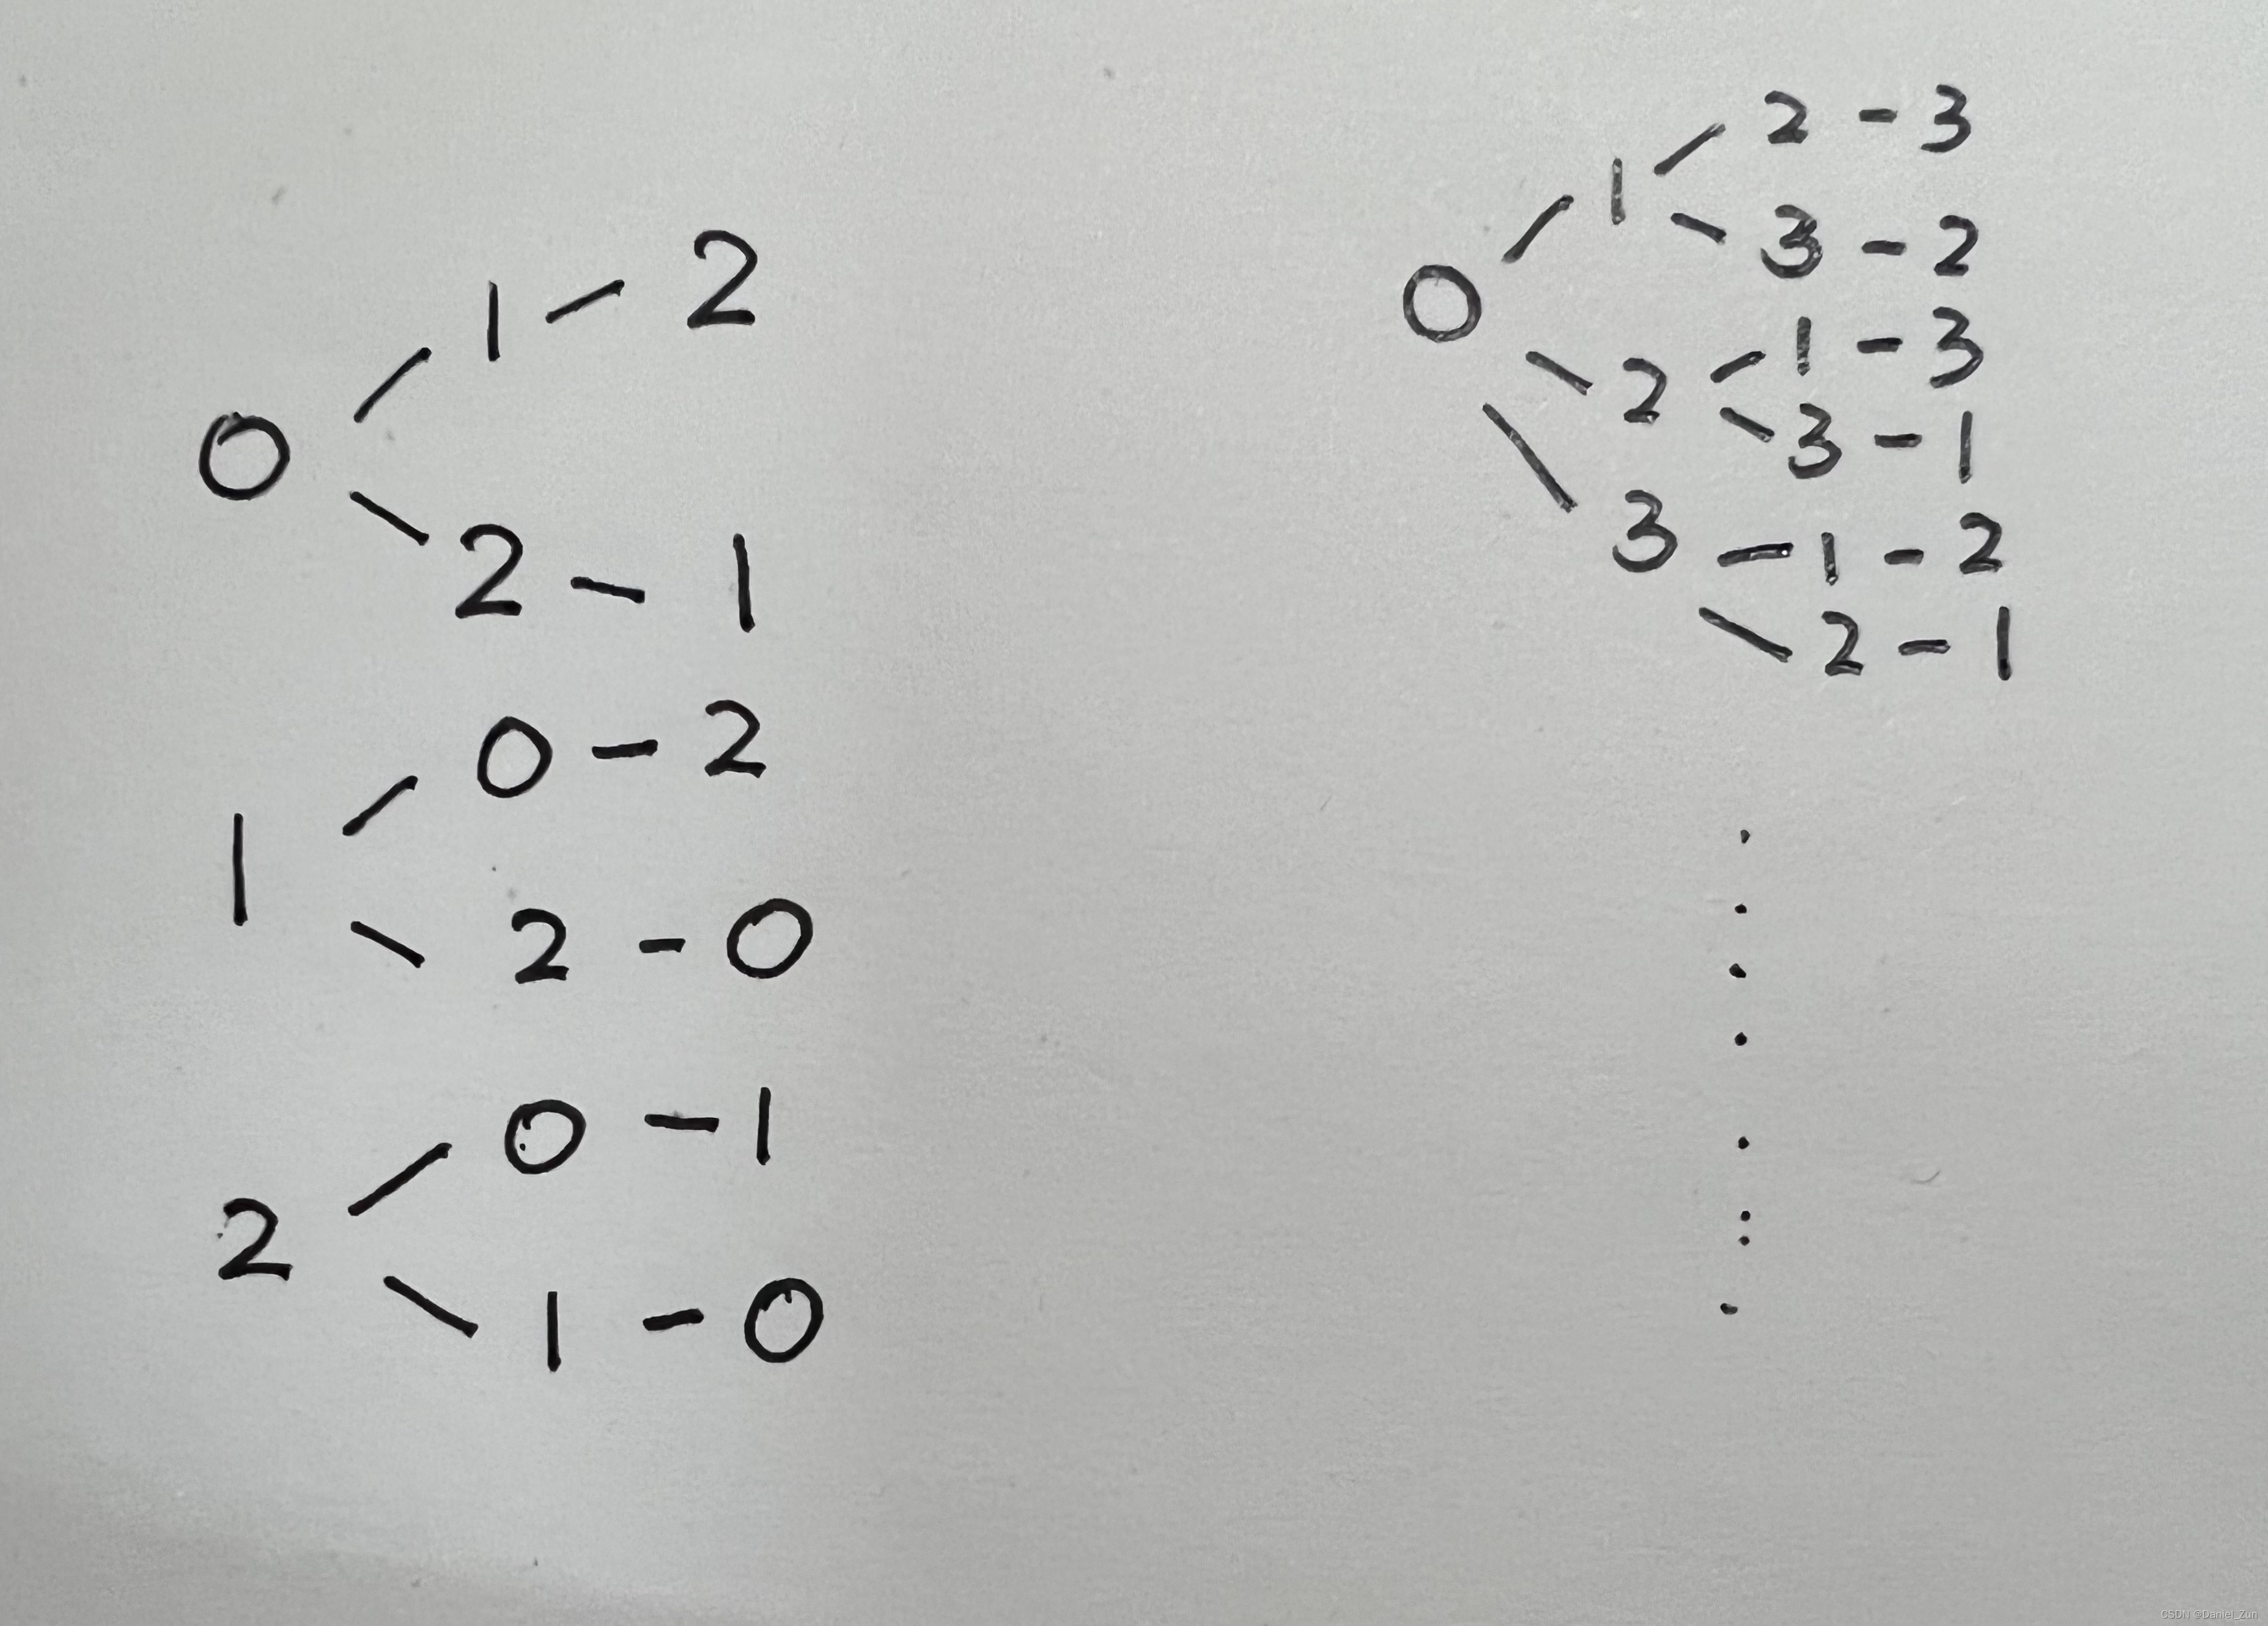 0 / 1 / 2
\ 2 - 1
1 / 0 - 2
\ 2 - 0
2 / 0 - 1
\ 1 - 0
0 / 1 / 2 - 3
\ 3 - 2
\ 2 / 1 - 3
\ 3 - 1
\ 3 - 1 - 2
\ 2 - 1
CSDN @Daniel_Zun